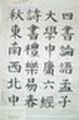 四書論語孟子
大學中庸六經
詩書禮樂易春
秋東南西北中